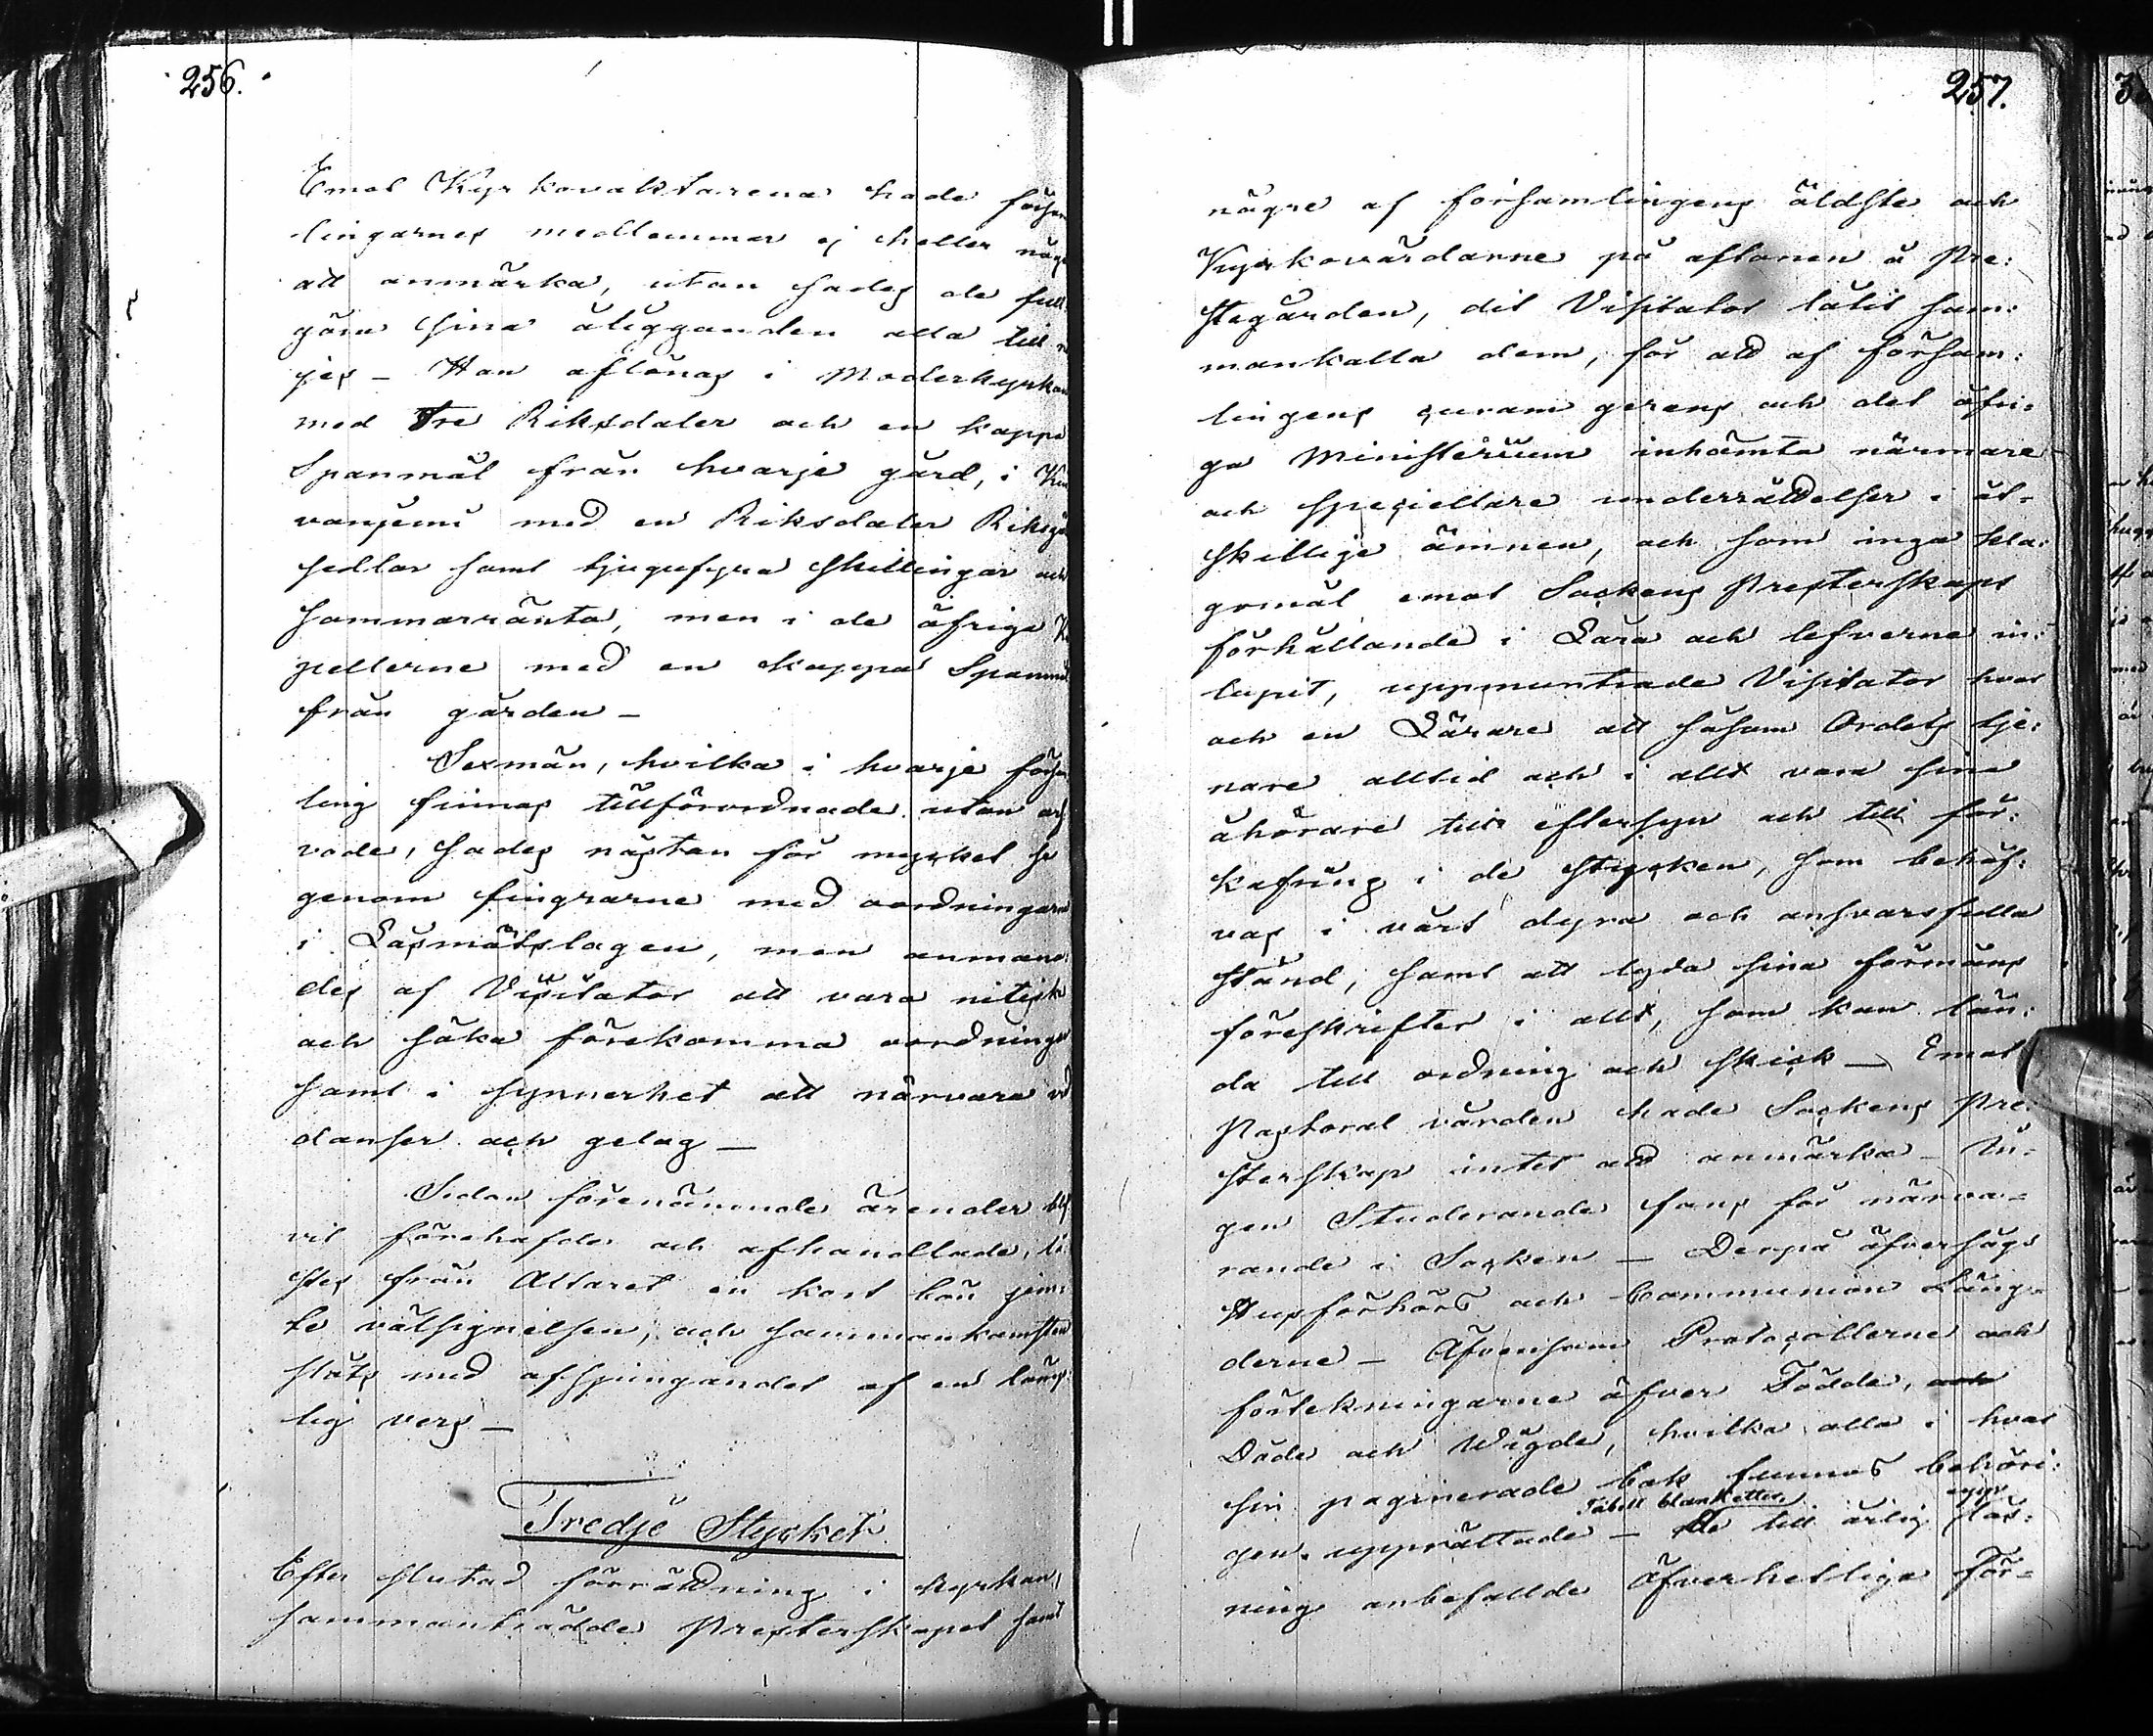 256.
Emot Kyrkovaktarena hade försam
lingarnes medlemmar ej heller någo
att anmärka, utan sades de full:
göra sina åligganden alla till n
jes – Han aflönas i Moderkyrkan
med Tre Riksdaler och en kappa
Spanmål från hvarje gård, i
vanjemi med en Riksdaler Riksgä
sedlar samt tjugufyra skillingar och
sommarränta, men i de öfriga Ka
pellerne med en kappa Spanmål
från gården –
Sexmän, hvilka i hvarje försam
ling finnas tillförordnade utan ar
vode, sades nästan för mycket se
genom fingrarne med oordningarne
i Läsmötslagen, men anmana
des af Visitator att vara nitiske
och söka förekomma oordningar
samt i synnerhet att närvara vid
danser och gelag –
Sedan förenämnde ärender blif
vit förehafde och afhandlade, lä
stes från Altaret en kort bön jem:
te välsignelsen, och sammankomsten
slöts med afsjungandet af en lämp
lig vers –
Tredje Stycket.
Efter slutad förrättning i kyrkan,
sammanträdde Presterskapet samt
257.
någre af församlingens äldste och
Kyrkovärdarne på aftonen å Pre:
stegården, dit Visitator låtit sam:
mankalla dem, för att af försam:
lingens curam gerens och det öfri=
ga Ministerium inhämta närmare
och speciellare underrättelser i åt=
skillige ämnen, och som inga kla:
gomål emot Sockens Presterskaps
förhållande i Lära och lefverne in:
lupit, uppmuntrade Visitator hvar
och en Lärare att såsom Ordets tje:
nare alltid och i allt vara sina
åhörare till eftersyn och till för:
kofring i de stycken, som behöf:
vas i vårt dyra och ansvarsfulla
stånd, samt att lyda sina förmäns
föreskrifter i allt, som kan län:
da till ordning och skick – Emot
Pastoral vården hade Sockens Pre:
sterskap intet att anmärka – In:
gen Studerande fans för närva=
rande i Socken – Derpå öfversågs
Husförhörs och Communion Läng=
derne – Äfvensom Protocollerne och
förtekningarne öfver Födde,
Döde och Wigde, hvilka alla i hvar
sin paginerade bok funnos behöri:
gen upprättade – Tabell blanketter. De till årlig upp läs:
ning anbefallde Öfverhetliga För=